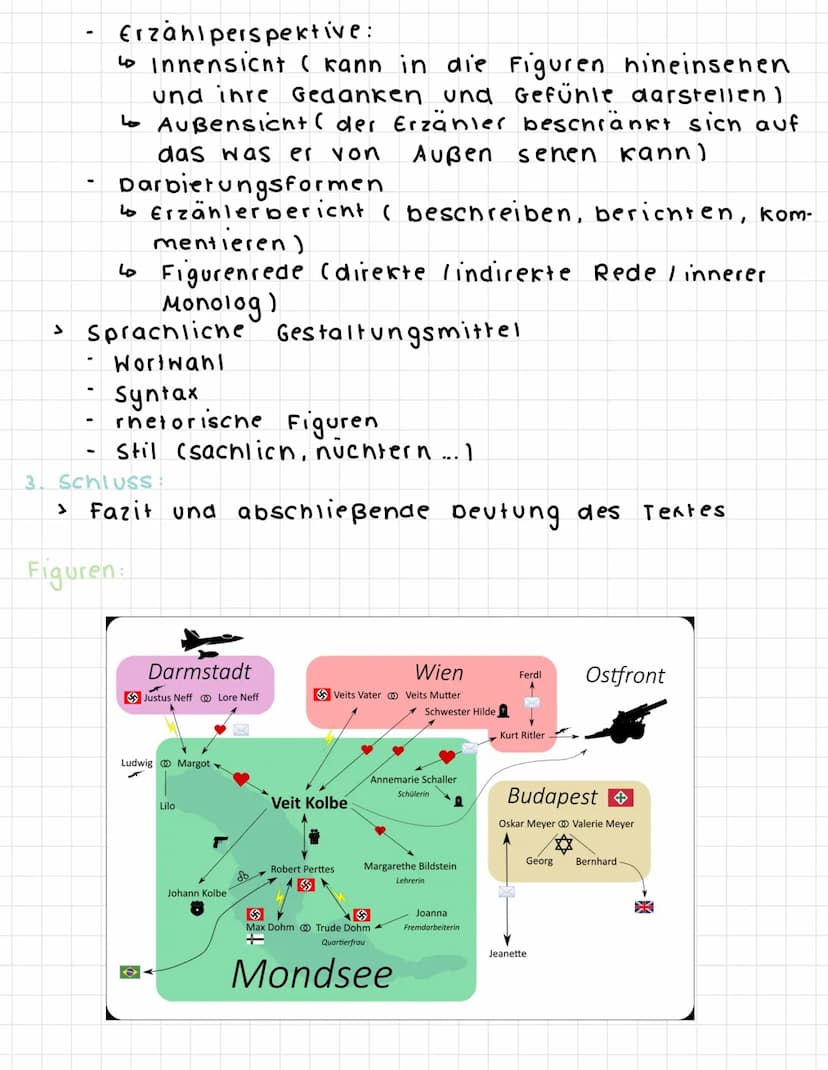 - Erzählperspektive:
↳ Innensicht ( kann in die Figuren hineinsehen
und ihre Gedanken und Gefühle darstellen )
↳ Außensicht ( der Erzähler beschränkt sich auf
das was er von Außen sehen kann )
- Darbietungsformen
↳ Erzählerbericht ( beschreiben, berichten, kom-
mentieren )
↳ Figurenrede ( direkte / indirekte Rede / innerer
Monolog )
> Sprachliche Gestaltungsmittel
- Wortwahl
- Syntax
- rhetorische Figuren
- Stil ( sachlich, nüchtern ... )
3. Schluss:
> Fazit und abschließende Deutung des Textes
Figuren:
Darmstadt
Justus Neff Lore Neff
Wien
Ferdl
Veits Vater Veits Mutter
Schwester Hilde
Kurt Ritler
Ostfront
Ludwig Margot
Lilo
Annemarie Schaller
Schülerin
Veit Kolbe
Budapest
Oskar Meyer Valerie Meyer
Georg Bernhard
Jeanette
Robert Perttes
Margarethe Bildstein
Lehrerin
Johann Kolbe
Max Dohm Trude Dohm
Quartierfrau
Joanna
Fremdarbeiterin
Mondsee